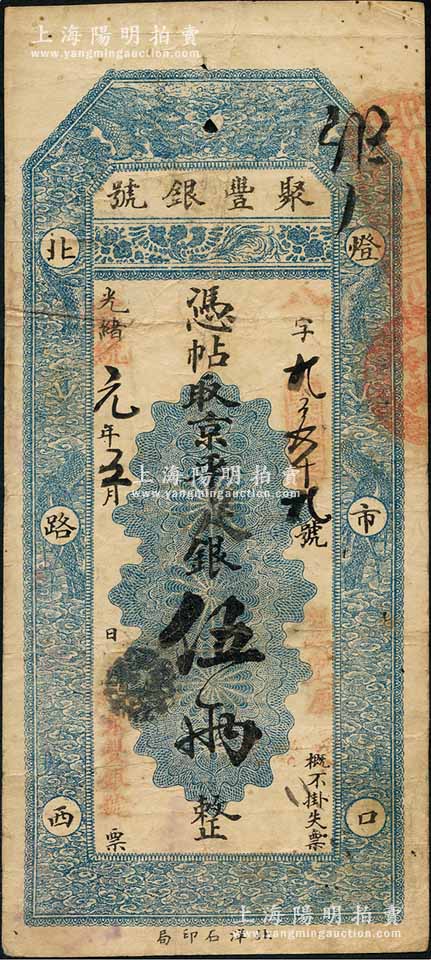 上海陽明拍賣
www.yangmingauction.com
聚豐銀號
燈市口
北路西
字九百五十九號
憑帖取京平足銀伍兩整
光緒元年五月 日 票
概不掛失票
上海陽明拍賣
www.yangmingauction.com
石印局
上海陽明拍賣
www.yangmingauction.com